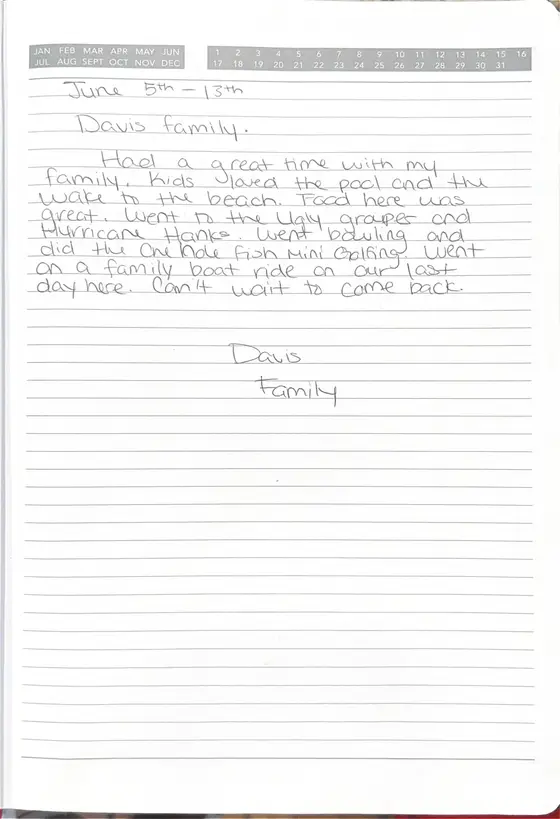 JAN FEB MAR APR MAY JUN
JUL AUG SEPT OCT NOV DEC
1 2 3 4 5 6 7 8 9 10 11 12 13 14 15 16
17 18 19 20 21 22 23 24 25 26 27 28 29 30 31
June 5th - 13th
Davis family.
Had a great time with my
family. Kids loved the pool and the
wake to the beach. Food here was
great. Went to the Ugly grouper and
Hurricane Hanks. Went bowling and
did the One hole fish Mini Golfing. Went
on a family boat ride on our last
day here. Can't wait to come back.
Davis
Family